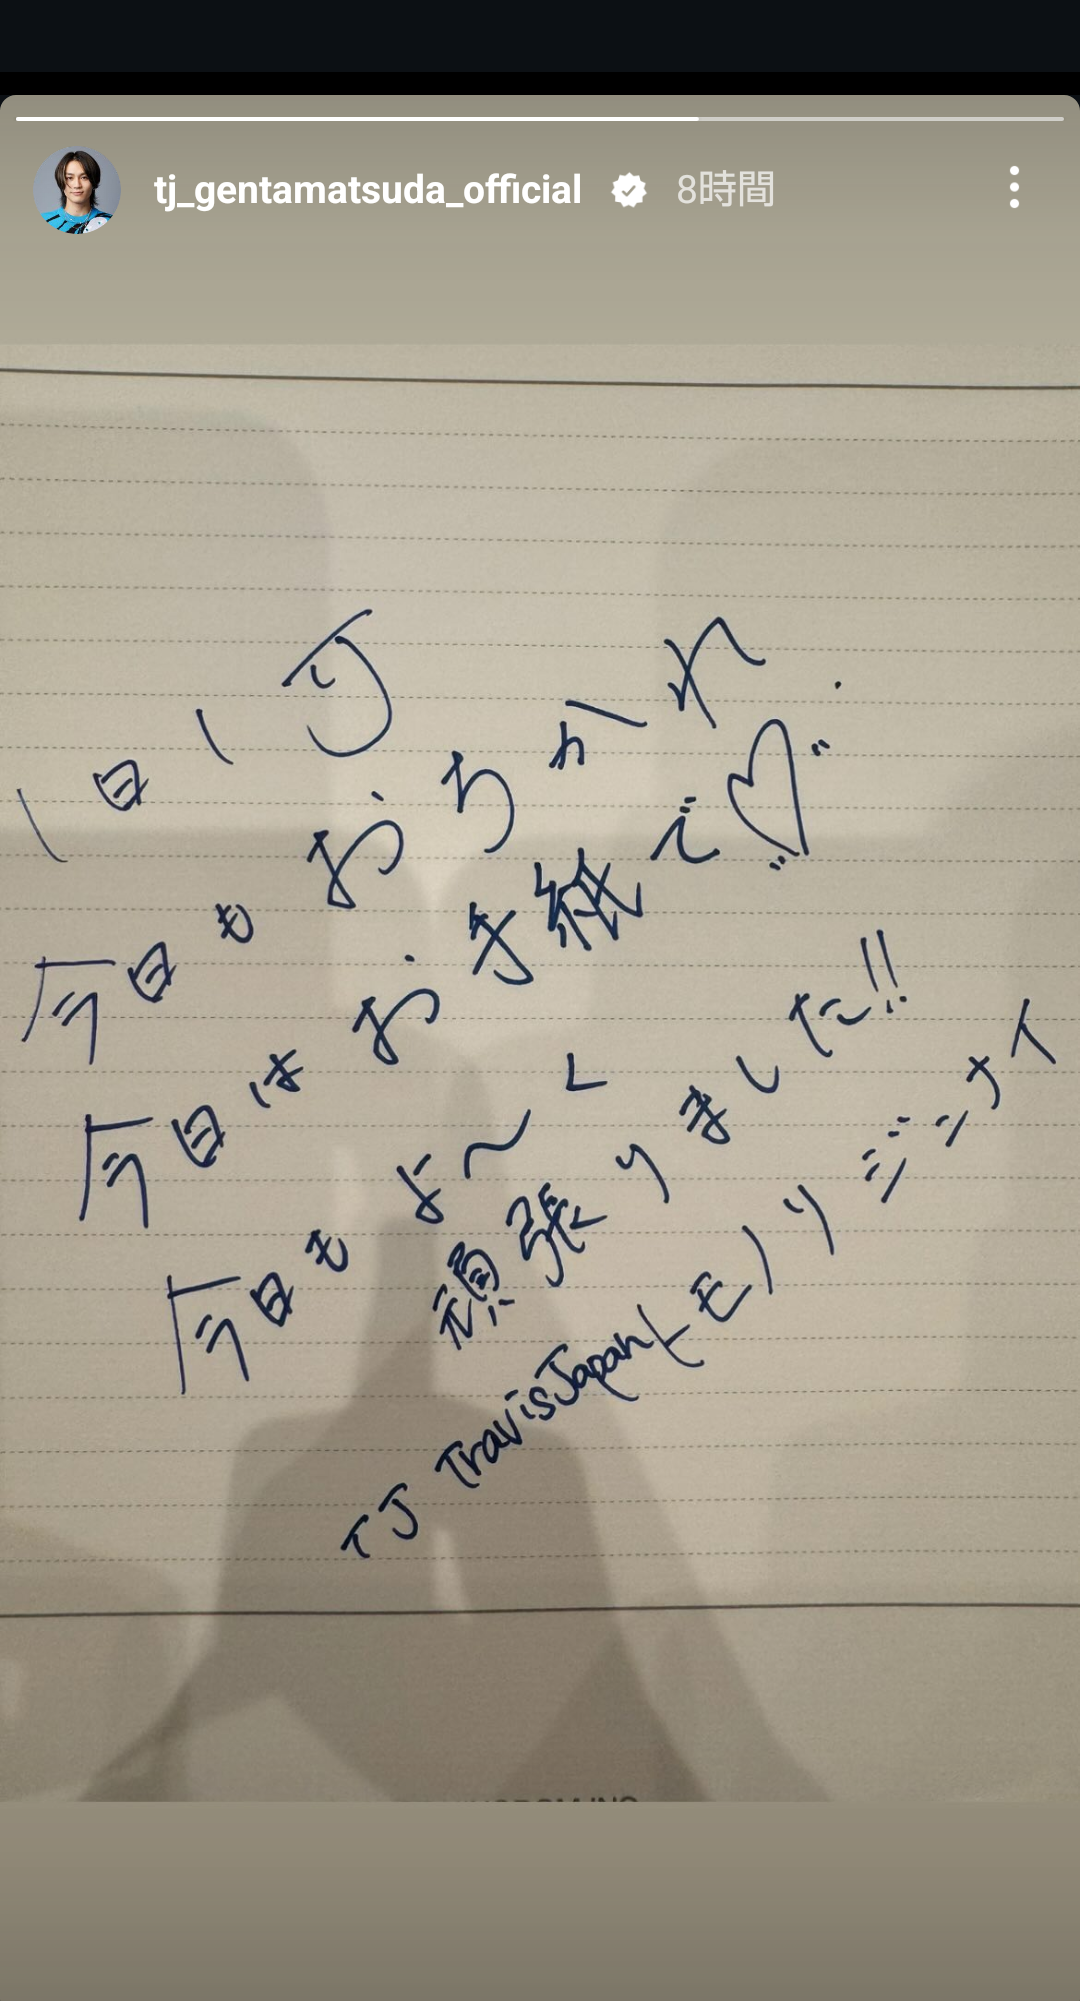 tj_gentamatsuda_official 8時間
1日1
今日もおちかれ
今日はお手紙で♡
今日もよ〜く
頑張りました!!
TJ TravisJapan